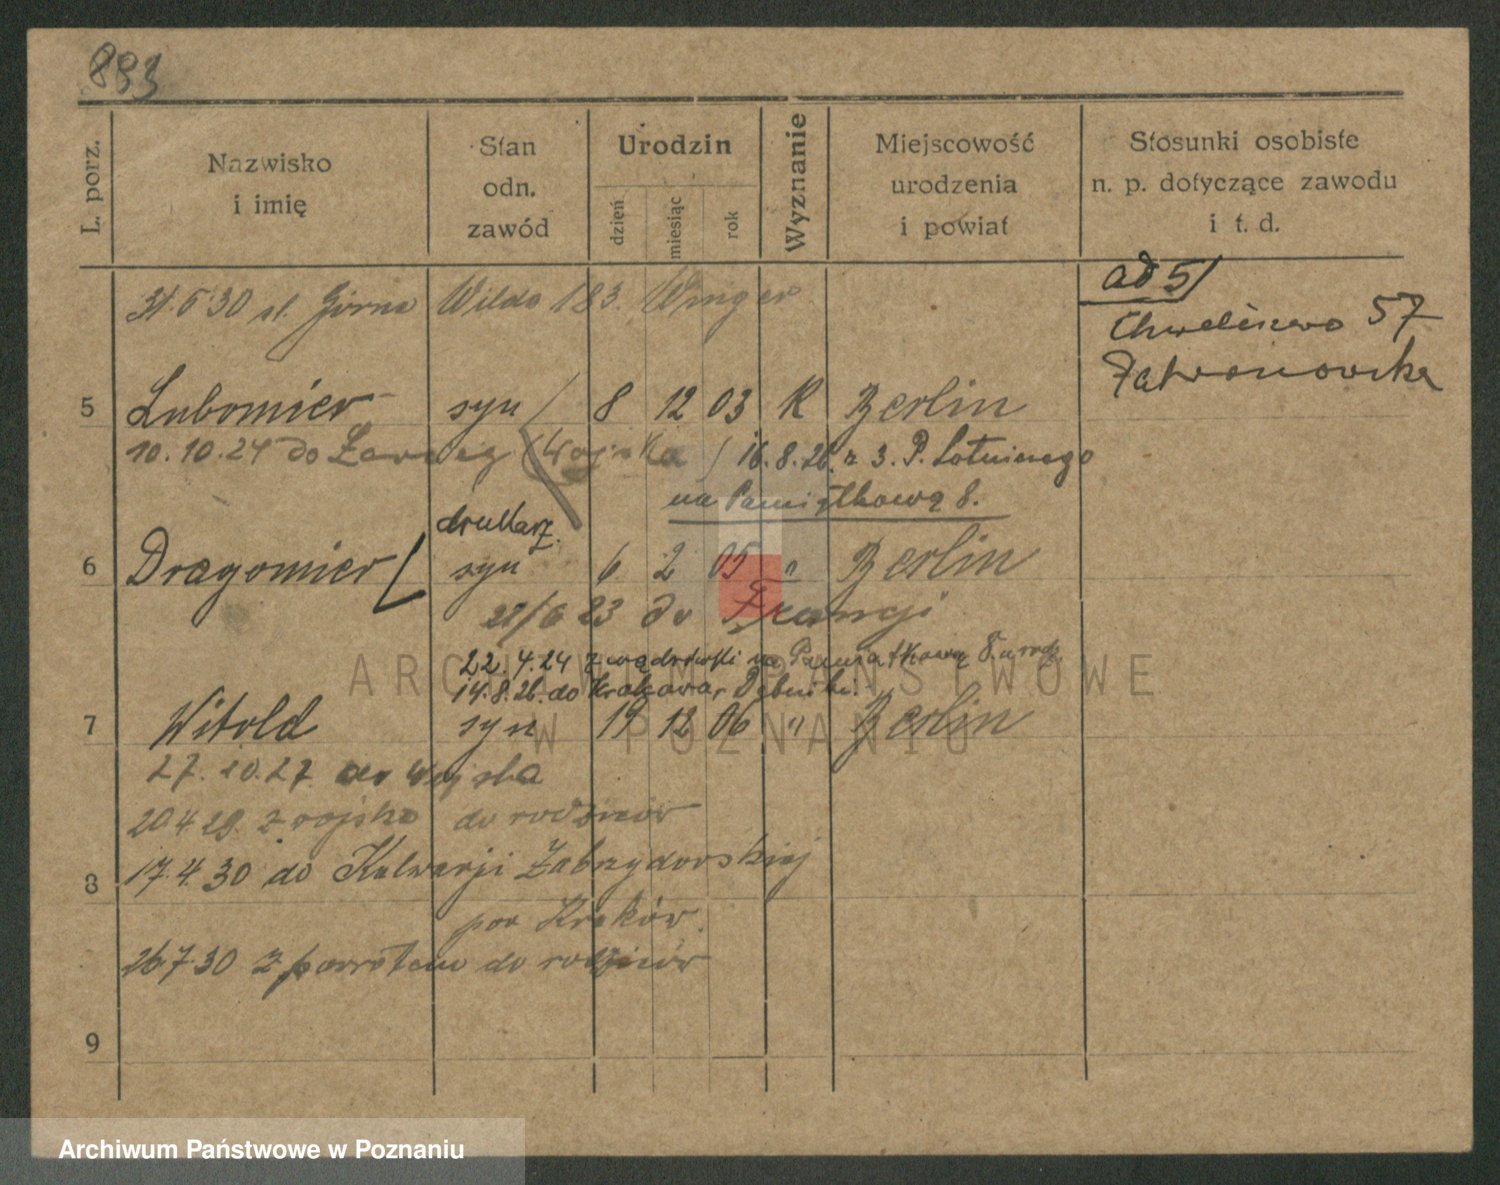 893
L. porz.
Nazwisko
i imię
Stan
odn.
zawód
Urodzin
dzień
miesiąc
rok
Wyznanie
Miejscowość
urodzenia
i powiat
Stosunki osobiste
n. p. dotyczące zawodu
i t. d.
31.5.30 Górna Wilda 183.
ad 5/
Chwaliszewo 57
5 Lubomier syn 8 12 03 K Berlin
10.10.24 do (Wojska) 16.8.26. z 3. P. Lotniczego
na Pamiątkową 8.
drukarz.
6 Dragomier syn 6 2 05 " Berlin
28/6 23 do Francji
22.4.24 z wędrówki na Pamiątkową 8. u rodz
14.8.26. do Krakowa, Dębniki.
7 Witold syn 19 12 06 " Berlin
27.10.27. do Wojska
20.4.29. z wojska do rodziców
17.4.30 do Kalwarji Zebrzydowskiej
8
pow Kraków.
26.7.30 z powrotem do rodziców
9
ARCHIWUM PAŃSTWOWE
W POZNANIU
Archiwum Państwowe w Poznaniu